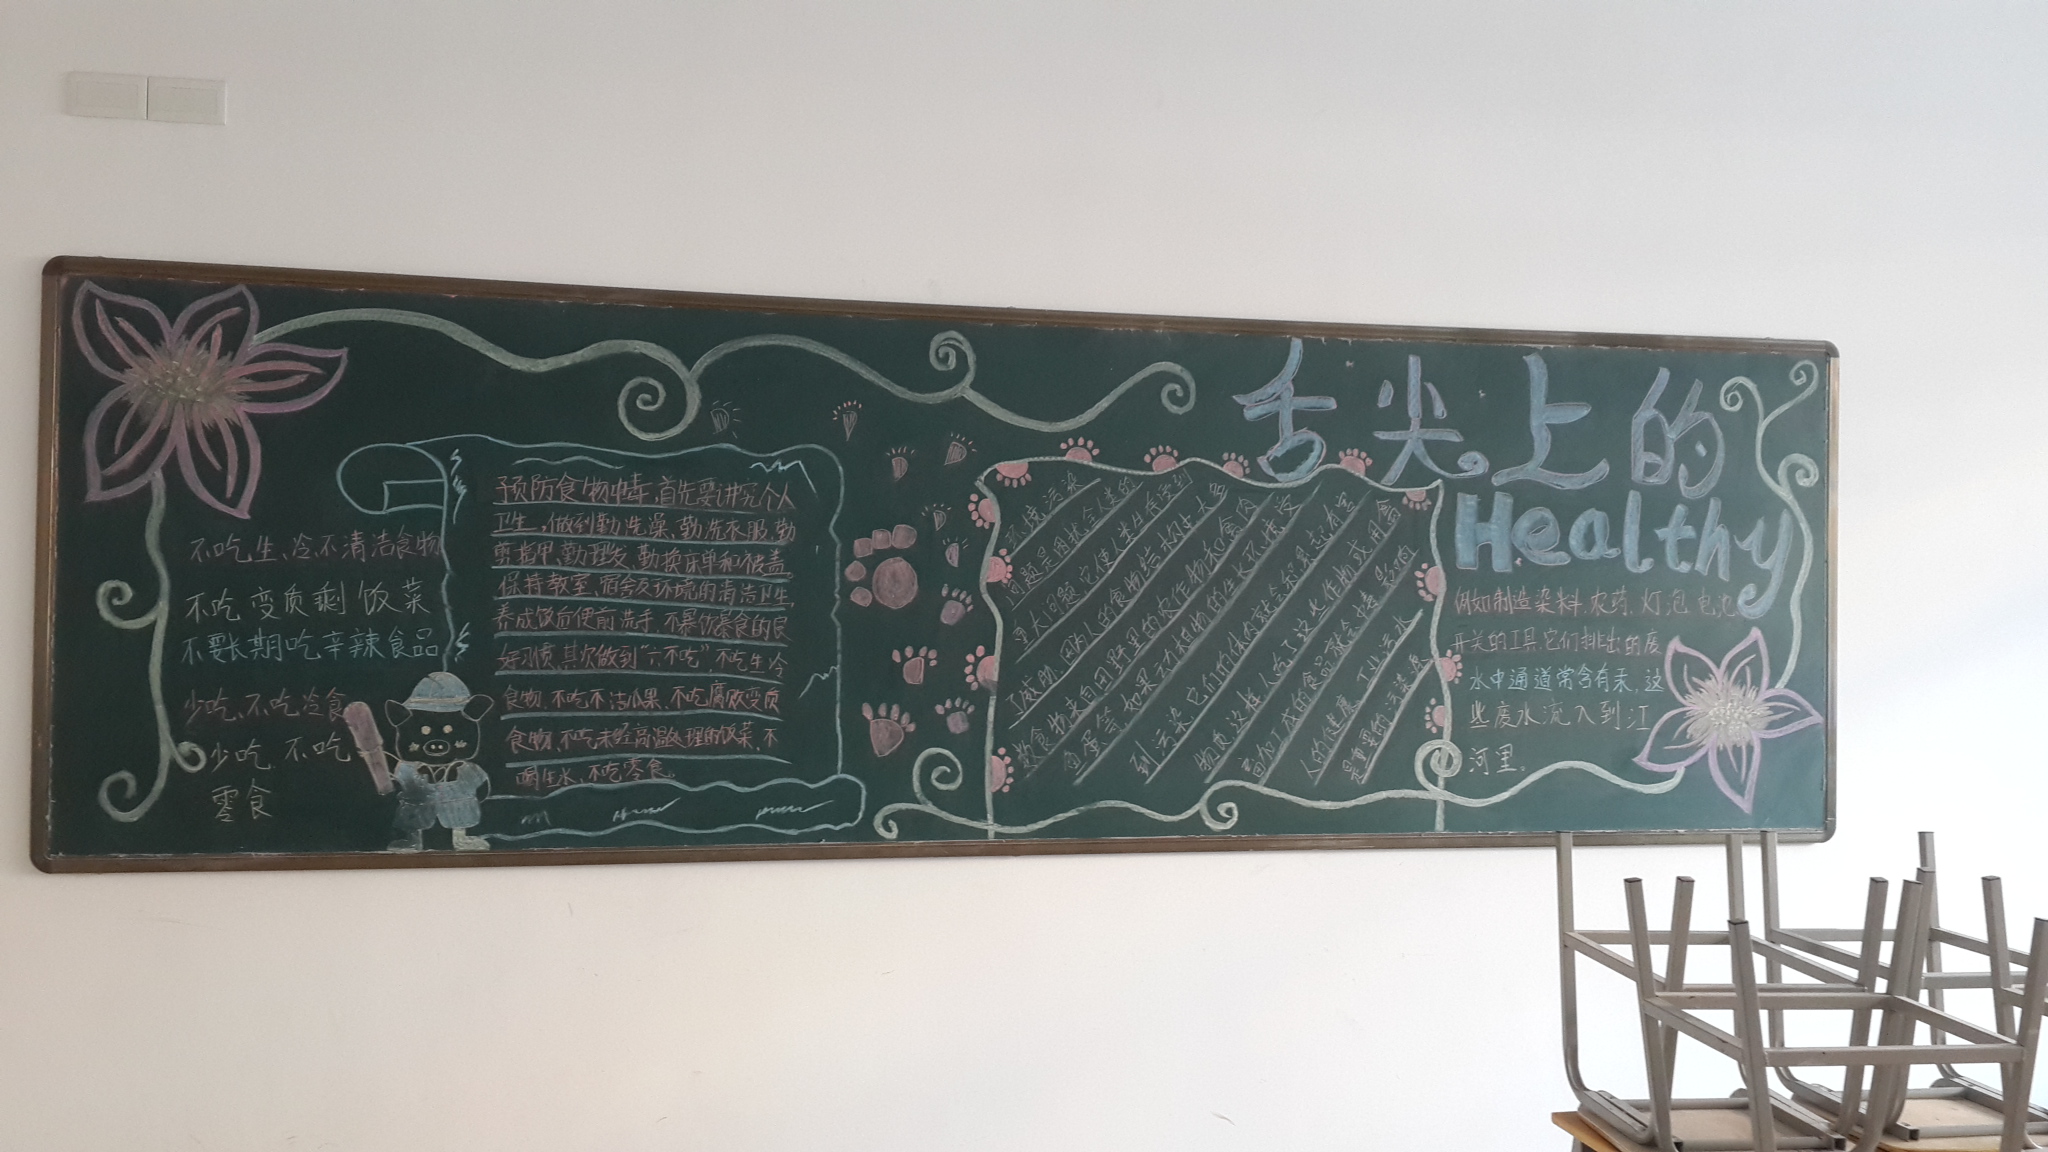 不吃生、冷、不清洁食物
不吃变质剩饭菜
不要长期吃辛辣食品
少吃、不吃冷食
少吃、不吃
零食
预防食物中毒,首先要讲究个人
卫生,做到勤洗澡、勤洗衣服、勤
剪指甲、勤理发、勤换床单和被盖,
保持教室、宿舍及环境的清洁卫生,
养成饭后便前洗手,不暴饮暴食的良
好习惯,其次做到“六不吃”,不吃生冷
食物、不吃不洁瓜果、不吃腐败变质
食物、不吃未经高温处理的饭菜、不
喝生水、不吃零食。
舌尖上的
Healthy
环境污染
问题是困扰全人类的
重大问题,它使人类生存受到
了威胁,因为人的食物结构大部
数食物来自田野里的农作物和禽肉
鱼蛋等,如果动植物的生长环境受
到污染,它们的体内就会积累起有害
物质,这样,人吃了这些作物或用禽
畜加工成的食品就会直接影响
人的健康,工业污水
是重要的污染源
例如制造染料、农药、灯泡、电池、
开关的工具,它们排出的废
水中通常含有汞,这
些废水流入到江
河里。